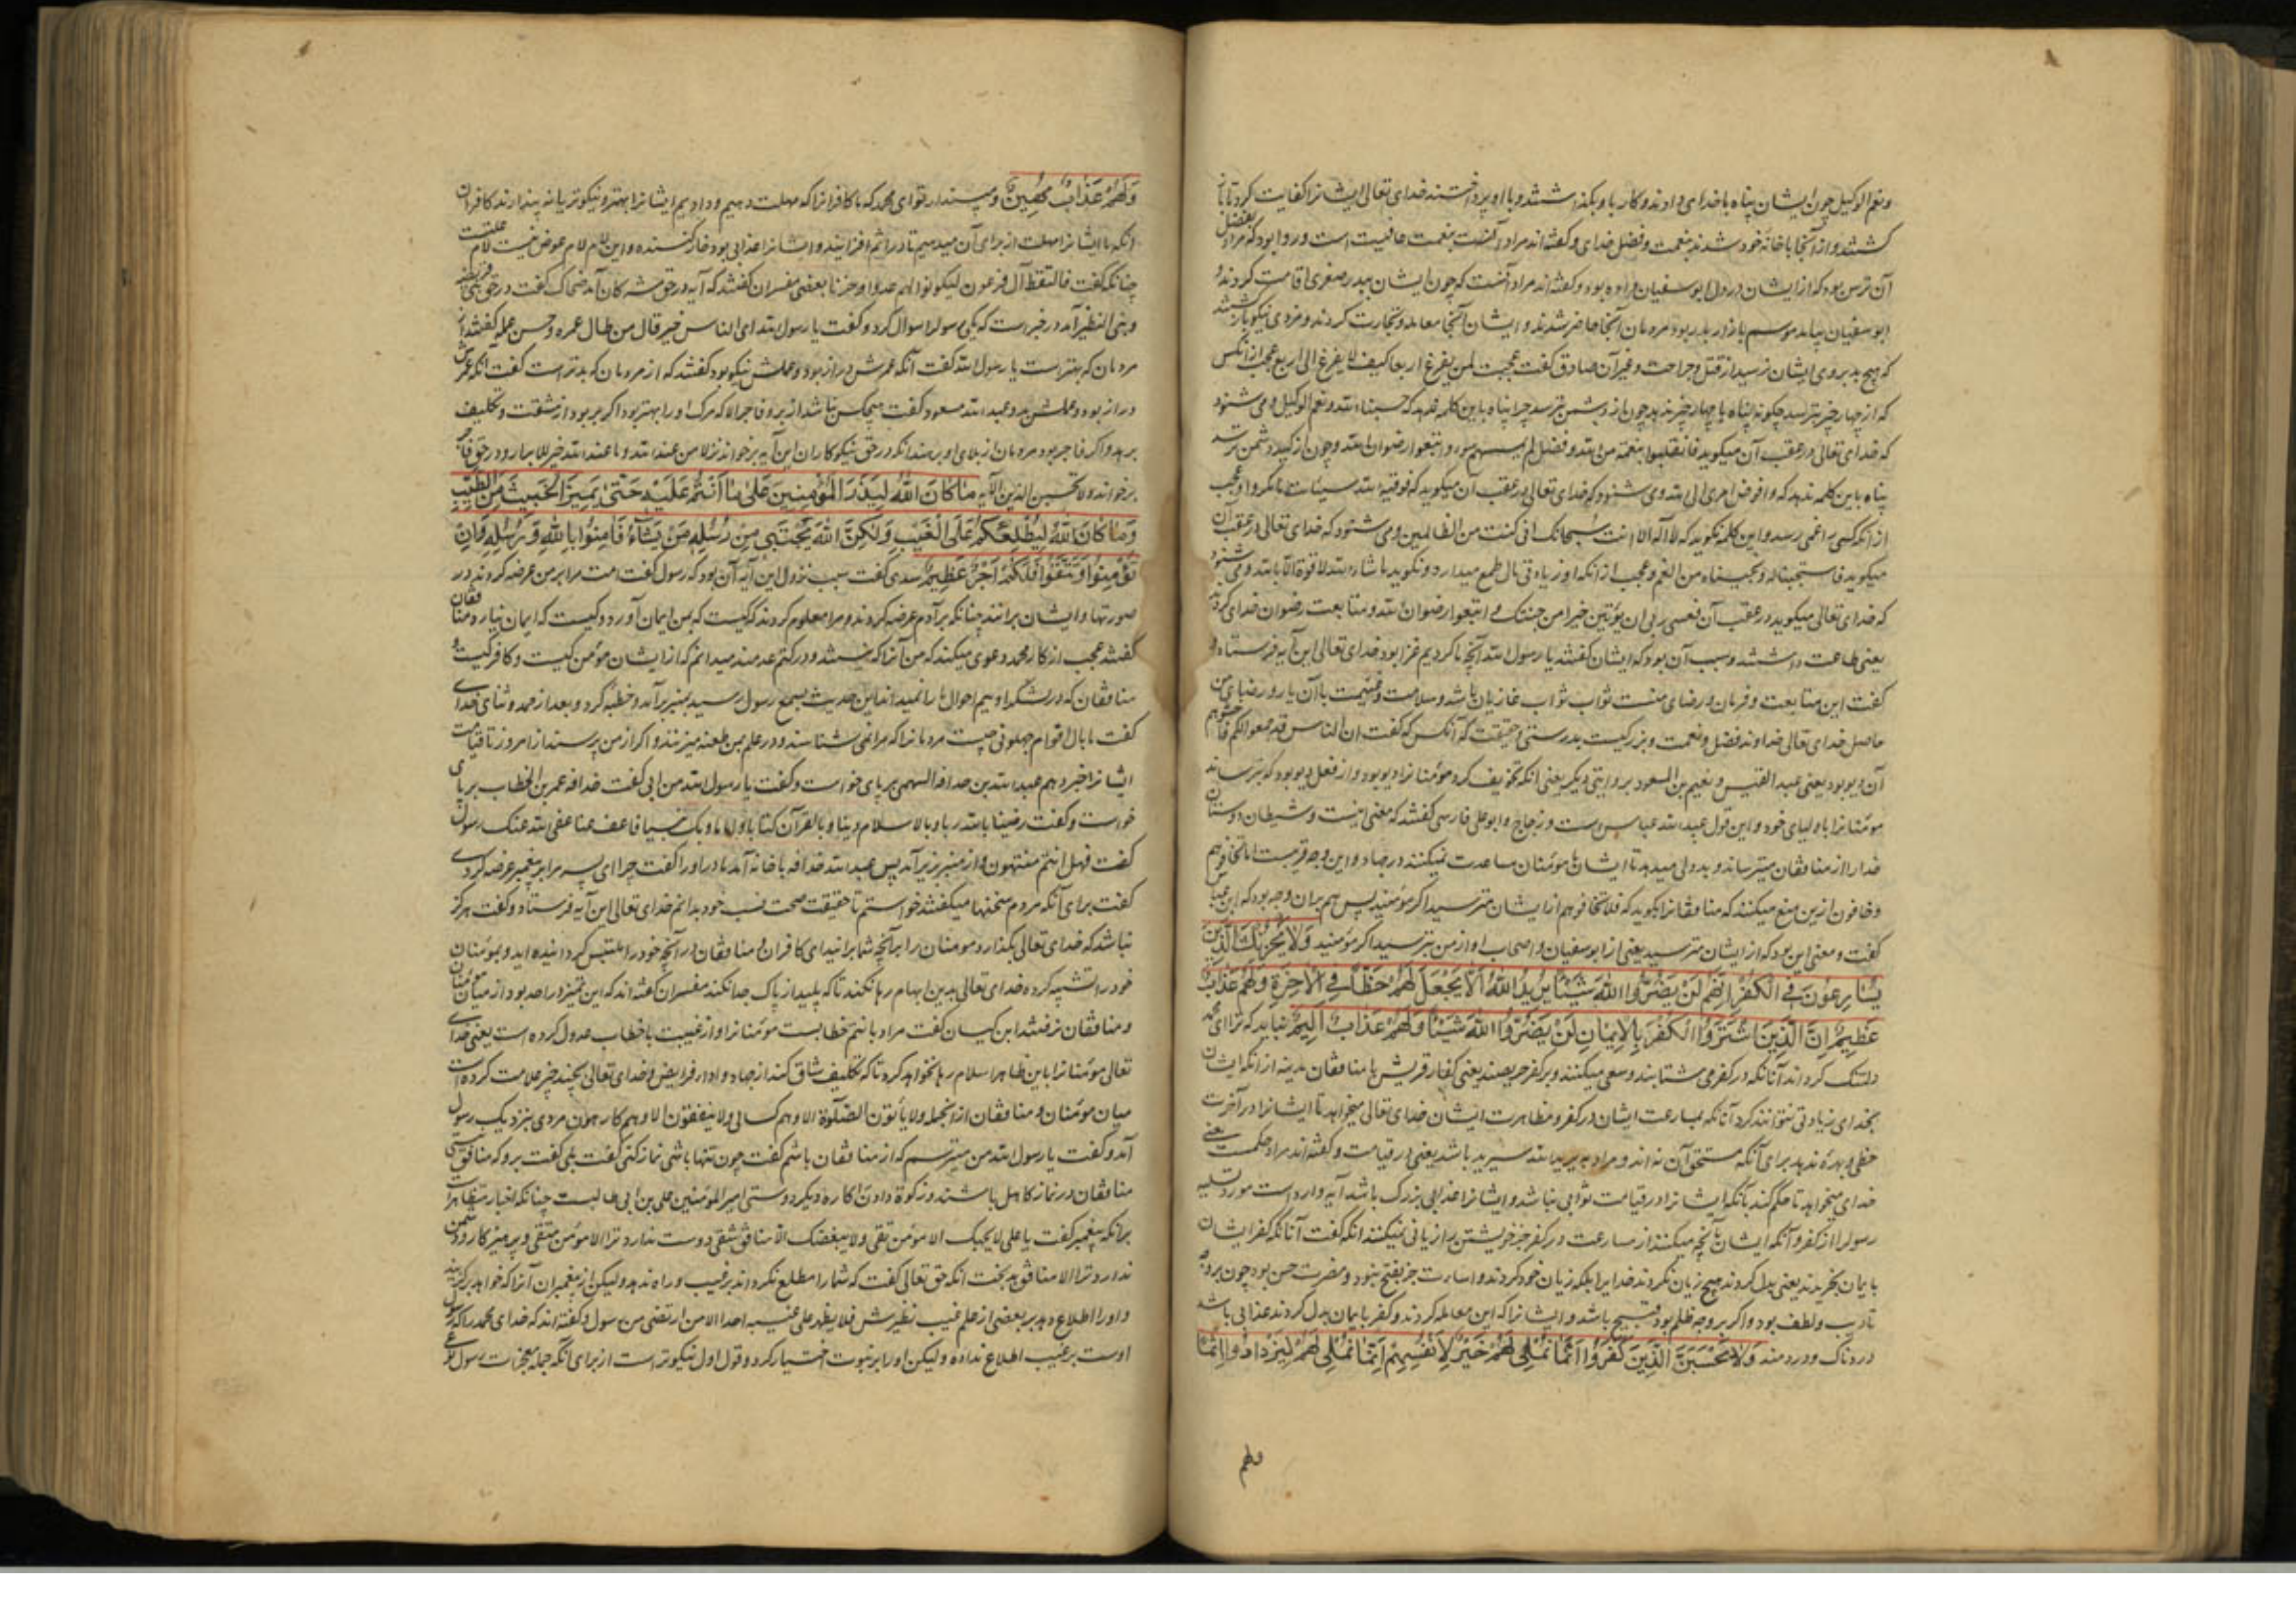 ونعم الوکیل چون ایشان پناه با خدای دادند و کار با و بگذاشتند و با او پرداختند خدای تعالی ایشانرا کفایت کرد تا باز
گشتند و از آنجا با خانه خود شدند بنعمت و فضل خدای و گفته‌اند مراد آنست بنعمت عافیت است و روا بود که مراد بفضل
آن ترس بود که از ایشان در دل ابوسفیان بود و گفته‌اند مراد آنست که چون ایشان ببدر صغری اقامت کردند و
ابوسفیان نیامد موسم بازار بدر بود مردمان آنجا حاضر شدند و ایشان آنجا معامله و تجارت کردند و مزدی نیکو باز گشتند
که هیچ بد بروی ایشان نرسید از قتل و جراحت و غیر آن صادق گفت عجبت لمن یفزع اربعا کیف لا یفزع الی اربع عجب از آنکس
که از چهار چیز بترسد چگونه پناه با چهار چیز ندهد چون از دشمن بترسد چرا پناه با این کلمه ندهد که حسبنا الله ونعم الوکیل و می شنود
که خدای تعالی در عقب آن میگوید فانقلبوا بنعمة من الله وفضل لم یمسسهم سوء واتبعوا رضوان الله و چون از کید دشمن ترسد
پناه باین کلمه ندهد که وافوض امری الی الله و می شنود که خدای تعالی در عقب آن میگوید که فوقیه الله سیئات ما مکروا و عجب
از آنکه کسی را غمی رسد و این کلمه نگوید که لا اله الا انت سبحانک انی کنت من الظالمین و می شنود که خدای تعالی در عقب آن
میگوید فاستجبنا له ونجیناه من الغم و عجب از آنکه او زیادتی مال طمع میدارد و نگوید ما شاء الله لا قوة الا بالله و می شنود
که خدای تعالی میگوید در عقب آن فعسی ربی ان یؤتین خیرا من جنتک واتبعوا رضوان الله و متابعت رضوان خدای کردند
یعنی طاعت داشتند و سبب آن بود که ایشان گفتند یا رسول الله آنچه ما کردیم غزا بود خدای تعالی این آیه فرستاد و
گفت این متابعت و فرمان و رضای منست ثواب ثواب غازیان باشد و سلامت و غنیمت با آن یار و رضای من
حاصل خدای تعالی خداوند فضل و نعمت و بزرگیست بدرستی و حقیقت که آنکس که گفت ان الناس قد جمعوا لکم فاخشوهم
آن دیو بود یعنی عبد القیس و نعیم بن المسعود بروایتی دیگر یعنی آنکه تخویف کرد مؤمنانرا دیو بود و از فعل دیو بود که بترساند
مؤمنانرا باولیای خود و این قول عبدالله عباس است و زجاج و ابوعلی فارسی گفتند که معنی اینست و شیطان دوستان
خدا را از منافقان میترساند و بددلی میدهد تا ایشان با مؤمنان مساعدت نمیکنند در جهاد و این وجه قریبست اما تخافوهم
وخافون ازین منع میکنند که منافقانرا بگوید که فلا تخافوهم از ایشان مترسید اگر مؤمنید پس هم بران وجه بود که ابن عباس
گفت و معنی این بود که از ایشان مترسید یعنی از ابوسفیان و اصحاب او از من بترسید اگر مؤمنید وَلَا يَحْزُنْكَ الَّذِينَ
يُسَارِعُونَ فِي الْكُفْرِ إِنَّهُمْ لَنْ يَضُرُّوا اللَّهَ شَيْئًا يُرِيدُ اللَّهُ أَلَّا يَجْعَلَ لَهُمْ حَظًّا فِي الْآخِرَةِ وَلَهُمْ عَذَابٌ
عَظِيمٌ إِنَّ الَّذِينَ اشْتَرَوُا الْكُفْرَ بِالْإِيمَانِ لَنْ يَضُرُّوا اللَّهَ شَيْئًا وَلَهُمْ عَذَابٌ أَلِيمٌ نباید که ترا ای محمد
دلتنگ کرداند آنانکه در کفر می شتابند و سعی میکنند و بر کفر حریصند یعنی کفار قریش یا منافقان مدینه از آنکه ایشان
بخدای زیادتی نتوانند کرد آنانکه بمسارعت ایشان در کفر و مظاهرت ایشان خدای تعالی میخواهد تا ایشانرا در آخرت
حظی و بهره ندهد برای آنکه مستحق آن نه‌اند و مراد به یرید الله سیرید باشد یعنی در قیامت و گفته‌اند مراد حکمست یعنی
خدای میخواهد تا حکم کند بآنکه ایشانرا در قیامت ثوابی نباشد و ایشانرا عذابی بزرگ باشد آیه وارد است مورد تسلیه
رسول را از کفر و آنکه ایشان بآنچه میکنند از مسارعت در کفر جز خویشتن را زیانی نمیکنند آنکه گفت آنانکه کفر ایشان
بایمان بخریدند یعنی بدل کردند هیچ زیان نکردند خدایرا بلکه زیان خود کردند و اساءت جز بقبح نبود و مضرت حسن بود چون بر وجه
تأدیب و لطف بود و اگر بر وجه ظلم بود قبیح باشد و ایشانرا که این معامله کردند و کفر بایمان بدل کردند عذابی باشد
دردناک و دردمند وَلَا يَحْسَبَنَّ الَّذِينَ كَفَرُوا أَنَّمَا نُمْلِي لَهُمْ خَيْرٌ لِأَنْفُسِهِمْ إِنَّمَا نُمْلِي لَهُمْ لِيَزْدَادُوا إِثْمًا
ولهم
وَلَهُمْ عَذَابٌ مُهِينٌ و مپندار تو ای محمد که ما کافرانرا که مهلت دهیم و دادیم ایشانرا بهتر و نیکوتر یا نه پندارند کافران
آنکه ما ایشانرا مهلت از برای آن میدهیم تا در اثم افزایند و ایشانرا عذابی بود خوارکننده و این لام لام عوض نیست لام عاقبت
چنانکه گفت فالتقطه آل فرعون لیکون لهم عدوا وحزنا بعضی مفسران گفتند که آیه در حق مشرکان آمد ضحاک گفت در حق بنی قریظه
و بنی النظیر آمد در خبر است که یکی رسول را سؤال کرد و گفت یا رسول الله ای الناس خیر قال من طال عمره وحسن عمله گفتند از
مردمان که بهتر است یا رسول الله گفت آنکه عمرش دراز بود و عملش نیکو بود گفتند که از مردمان که بدتر است گفت آنکه عمرش
دراز بود و عملش بد و عبدالله مسعود گفت هیچکس نباشد از بر و فاجر الا که مرگ او را بهتر بود اگر بر بود از مشقت و تکلیف
برهد و اگر فاجر بود مردمان از بلای او برهند آنکه در حق نیکوکاران این آیه برخواند نزلا من عند الله وما عند الله خیر للابرار و در حق فاجر
برخواند ولا تحسبن الذین الآیه مَا كَانَ اللَّهُ لِيَذَرَ الْمُؤْمِنِينَ عَلَى مَا أَنْتُمْ عَلَيْهِ حَتَّى يَمِيزَ الْخَبِيثَ مِنَ الطَّيِّبِ
وَمَا كَانَ اللَّهُ لِيُطْلِعَكُمْ عَلَى الْغَيْبِ وَلَكِنَّ اللَّهَ يَجْتَبِي مِنْ رُسُلِهِ مَنْ يَشَاءُ فَآمِنُوا بِاللَّهِ وَرُسُلِهِ وَإِنْ
تُؤْمِنُوا وَتَتَّقُوا فَلَكُمْ أَجْرٌ عَظِيمٌ سدی گفت سبب نزول این آیه آن بود که رسول گفت امت مرا بر من عرضه کردند در
صورتها و ایشان برانند چنانکه بر آدم عرضه کردند و مرا معلوم کردند که کیست که بمن ایمان آورد و کیست که ایمان نیارد منافقان
گفتند عجب از کار محمد دعوی میکند که من آنرا که نیستند و در کتم عدمند میدانم که از ایشان مؤمن کیست و کافر کیست و
منافقان که در لشکر اوییم احوال ما را نمیداند این حدیث بسمع رسول رسید بمنبر برآمد و خطبه کرد و بعد از حمد و ثنای خدای
گفت ما بال اقوام جهلونی چیست مردمانرا که مرا نمی شناسند و در علم من طعنه میزنند و اگر از من پرسند از امروز تا قیامت
ایشانرا خبر دهم عبدالله بن حذافه السهمی بر پای خواست و گفت یا رسول الله من ابی گفت حذافه عمر بن الخطاب بر پای
خواست و گفت رضینا بالله ربا وبالاسلام دینا وبالقرآن کتابا وبک نبیا فاعف عنا عفی الله عنک رسول
گفت فهل انتم منتهون و از منبر بزیر آمد پس عبدالله حذافه با خانه آمد مادر او را گفت چرا ای پسر مرا بر پیغمبر عرضه کردی
گفت برای آنکه مردم سخنها میگفتند خواستم تا حقیقت صحت نسب خود بدانم خدای تعالی این آیه فرستاد و گفت هرگز
نباشد که خدای تعالی بگذارد مومنان را برآنچه شما برانیدای کافران و منافقان در آنچه خود را ملتبس گردانیده اید و بمؤمنان
خود را تشبیه کرده خدای تعالی بدین ابهام رها نکند تا که پلید از پاک جدا نکند مفسران گفته‌اند که این تمیز در احد بود از میان مؤمنان
و منافقان نرفتند ابن کیسان گفت مراد بانتم خطابست مؤمنانرا و از غیبت با خطاب عدول کرده است یعنی خدای
تعالی مؤمنانرا باین ظاهر اسلام رها نخواهد کرد تا که تکلیف شاق کند از جهاد و ادای فرایض و خدای تعالی بچند چیز علامت کرده است
میان مؤمنان و منافقان از آنجمله ولا یأتون الصلوة الا وهم کسالی ولا ینفقون الا وهم کارهون مردی بنزدیک رسول
آمد و گفت یا رسول الله من میترسم که از منافقان باشم گفت چون تنها باشی نماز کنی گفت بلی گفت برو که منافق نیستی
منافقان در نماز کاهل باشند و زکوة دادن کاره دیگر دوستی امیر المؤمنین علی بن ابی طالبست چنانکه اخبار متظاهر است
برآنکه پیغمبر گفت یا علی لا یحبک الا مؤمن تقی ولا یبغضک الا منافق شقی دوست ندارد ترا الا مؤمن متقی و پرهیزکار و دشمن
ندارد ترا الا منافق بدبخت آنکه حق تعالی گفت که شما را مطلع نکرداند بر غیب و راه ندهد ولیکن از پیغمبران آنرا که خواهد برگزیند
و او را اطلاع دهد بر بعضی از علم غیب نظیرش فلا یظهر علی غیبه احدا الا من ارتضی من رسول و گفته‌اند که خدای محمد را که رسول
اوست بر غیب اطلاع نداده ولیکن او را بر نبوت اختیار کرد و قول اول نیکوتر است از برای آنکه جمله معجزات رسول ع